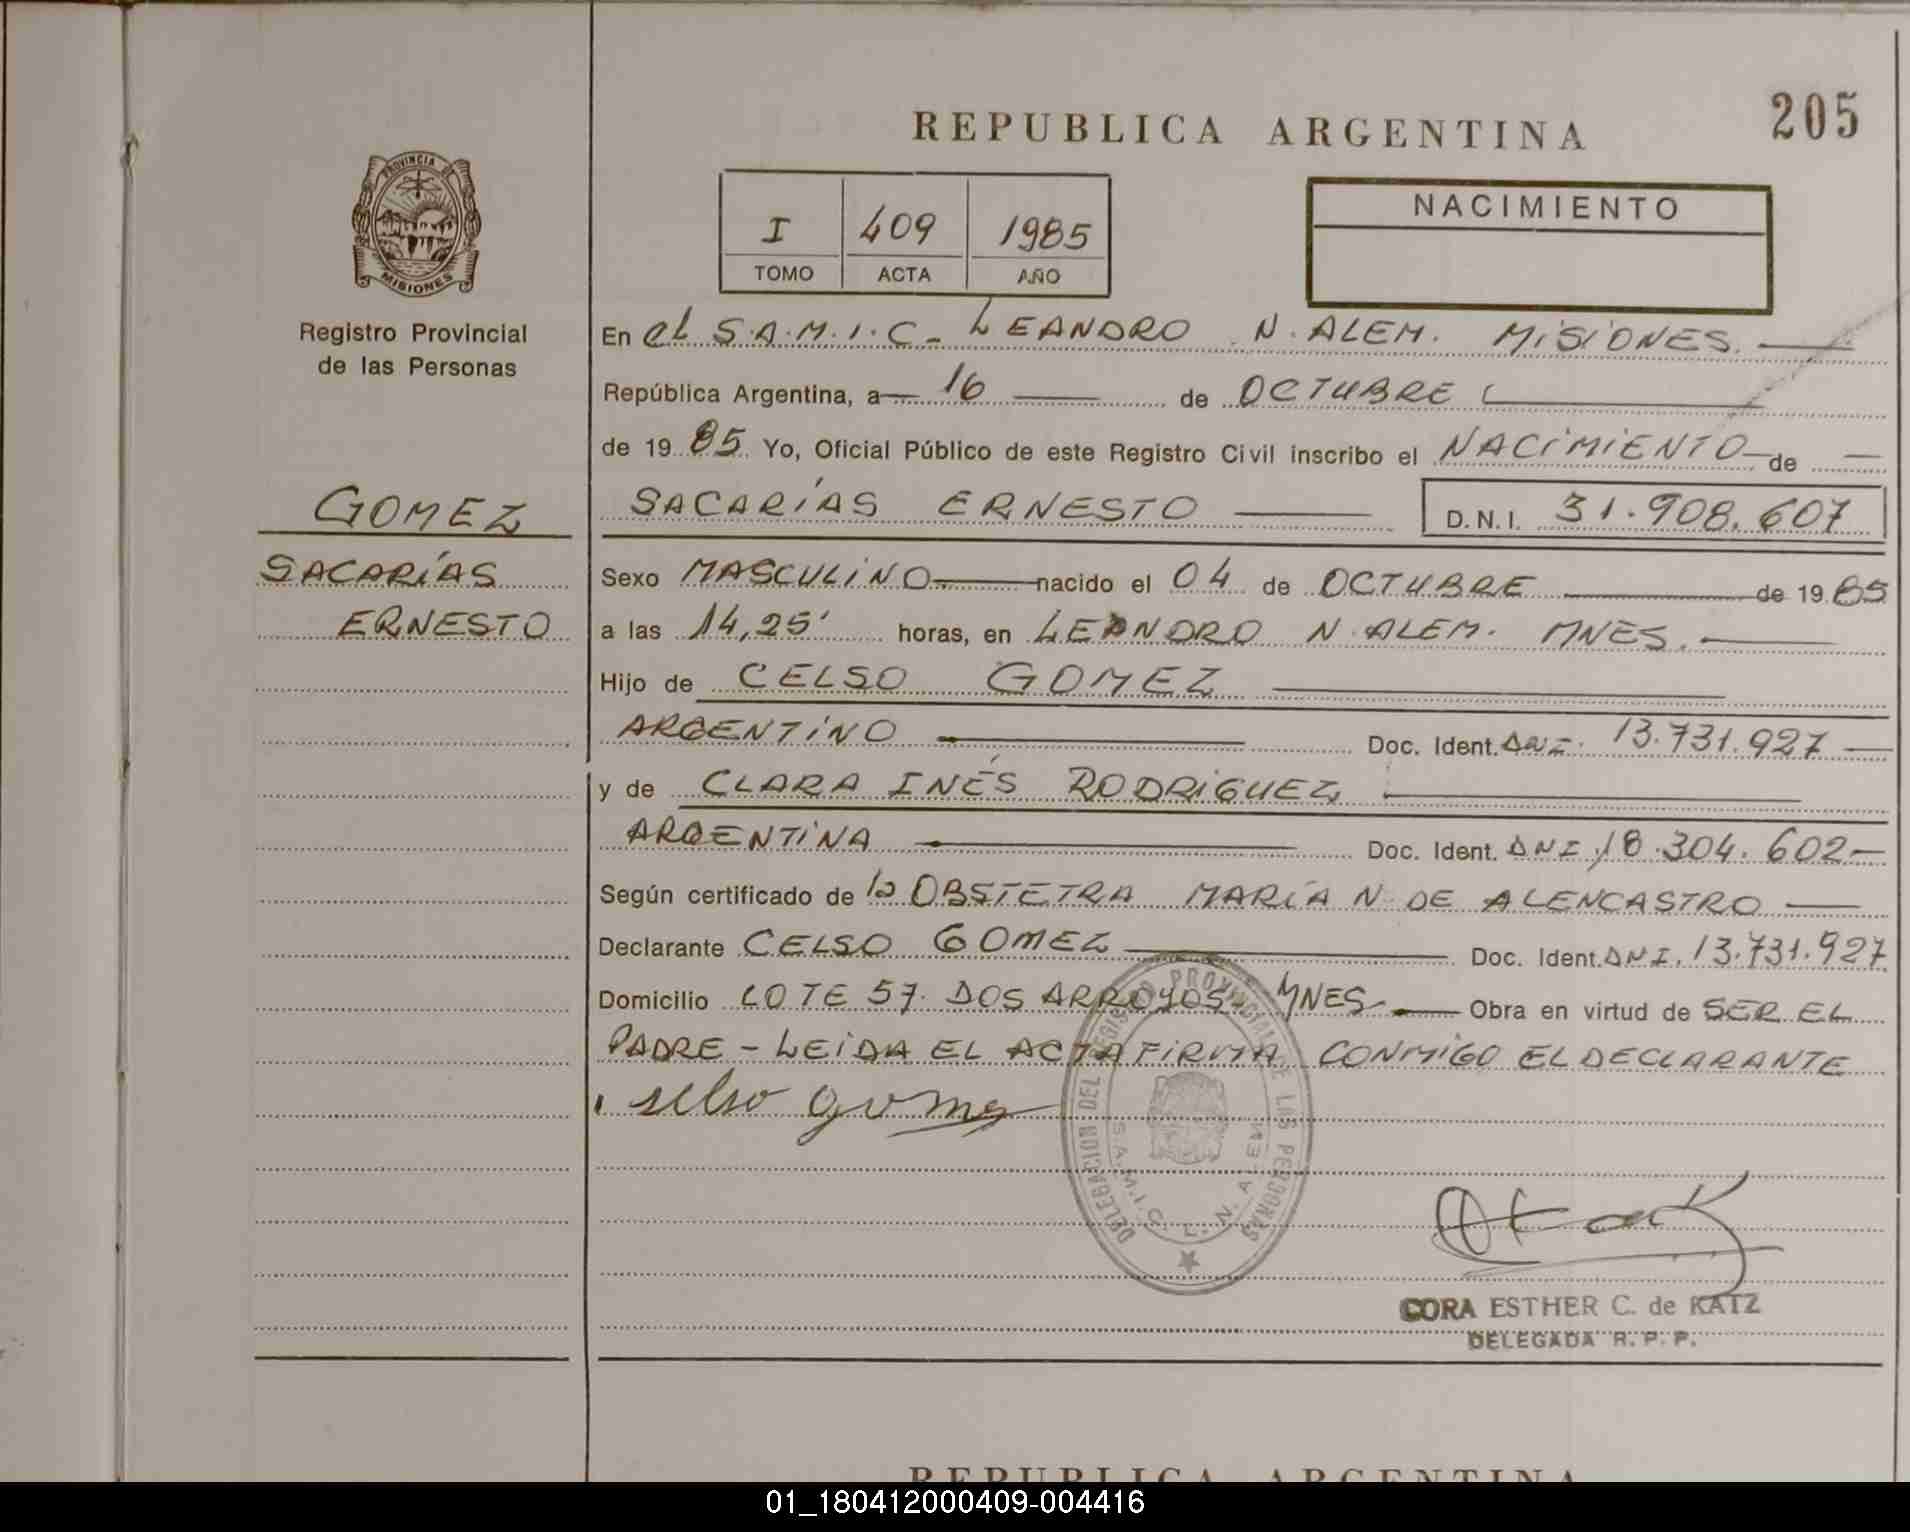 205
REPUBLICA ARGENTINA
PROVINCIA DE
MISIONES
Registro Provincial
de las Personas
I 409 1985
TOMO ACTA AÑO
NACIMIENTO
En el S.A.M.I.C- LEANDRO N. ALEM. MISIONES.
República Argentina, a 16 de OCTUBRE
de 1985 Yo, Oficial Público de este Registro Civil inscribo el NACIMIENTO de
GOMEZ
SACARÍAS ERNESTO D.N.I. 31.908.607
SACARÍAS
ERNESTO
Sexo MASCULINO nacido el 04 de OCTUBRE de 1985
a las 14,25' horas, en LEANDRO N. ALEM. MNES.
Hijo de CELSO GOMEZ
ARGENTINO Doc. Ident. DNI. 13.731.927
y de CLARA INÉS RODRIGUEZ
ARGENTINA Doc. Ident. DNI. 18.304.602
Según certificado de la OBSTETRA MARÍA N DE ALENCASTRO
Declarante CELSO GOMEZ Doc. Ident. DNI. 13.731.927
Domicilio LOTE 57. DOS ARROYOS- MNES. Obra en virtud de SER EL
PADRE - LEIDA EL ACTA FIRMA CONMIGO EL DECLARANTE
selso gomes
DELEGACION DEL REGISTRO PROVINCIAL DE LAS PERSONAS
S.A.M.I.C. L. N. ALEM
CORA ESTHER C. de KATZ
DELEGADA R. P. P.
REPUBLICA ARGENTINA
01_180412000409-004416